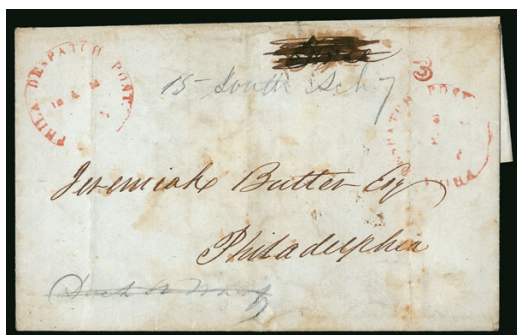 PHILA DESPATCH POST
PHILA DESPATCH POST
15 South Sch 7
Jeremiah Butler Esq
Philadelphia